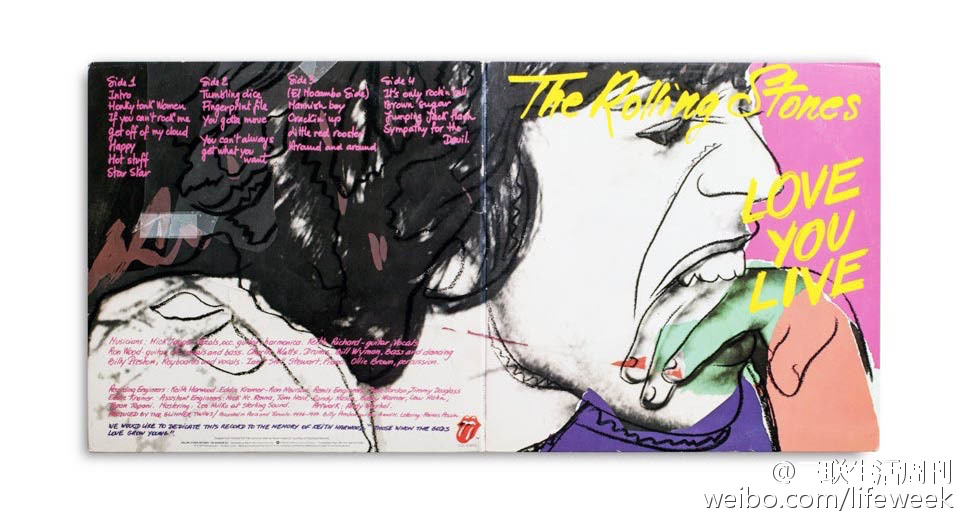 Side 1
Intro
Honky tonk Women
If you can't rock me
Get off of my cloud
Happy
Hot stuff
Star Star
Side 2
Tumbling dice
Fingerprint file
You gotta move
You can't always
get what you
want
Side 3
(El Mocambo Side)
Mannish boy
Crackin' up
Little red rooster
Around and around
Side 4
It's only rock'n roll
Brown Sugar
Jumping Jack Flash
Sympathy for the
Devil.
The Rolling Stones
LOVE
YOU
LIVE
Musicians, Mick vocals, acc. guitar, harmonica. Keith Richard-guitar, Vocals
Ron Wood-guitar vocals and bass. Charlie Watts, Drums. Bill Wyman, Bass and dancing
Billy Preston, Keyboards and vocals. Stewart, Piano. Ollie Brown, percussion.
Recording Engineers: Keith Harwood. Eddie Kramer. Ron Remix Engineers Jimmy Douglass
Eddie Kramer. Assistant Engineers:
Mastering: Lee Hulko at Sterling Sound. Artwork, Andy Warhol
PRODUCED BY THE GLIMMER TWINS/
WE WOULD LIKE TO DEDICATE THIS RECORD TO THE MEMORY OF KEITH HARWOOD "THOSE WHOM THE GODS
LOVE GROW YOUNG".
@三联生活周刊
weibo.com/lifeweek